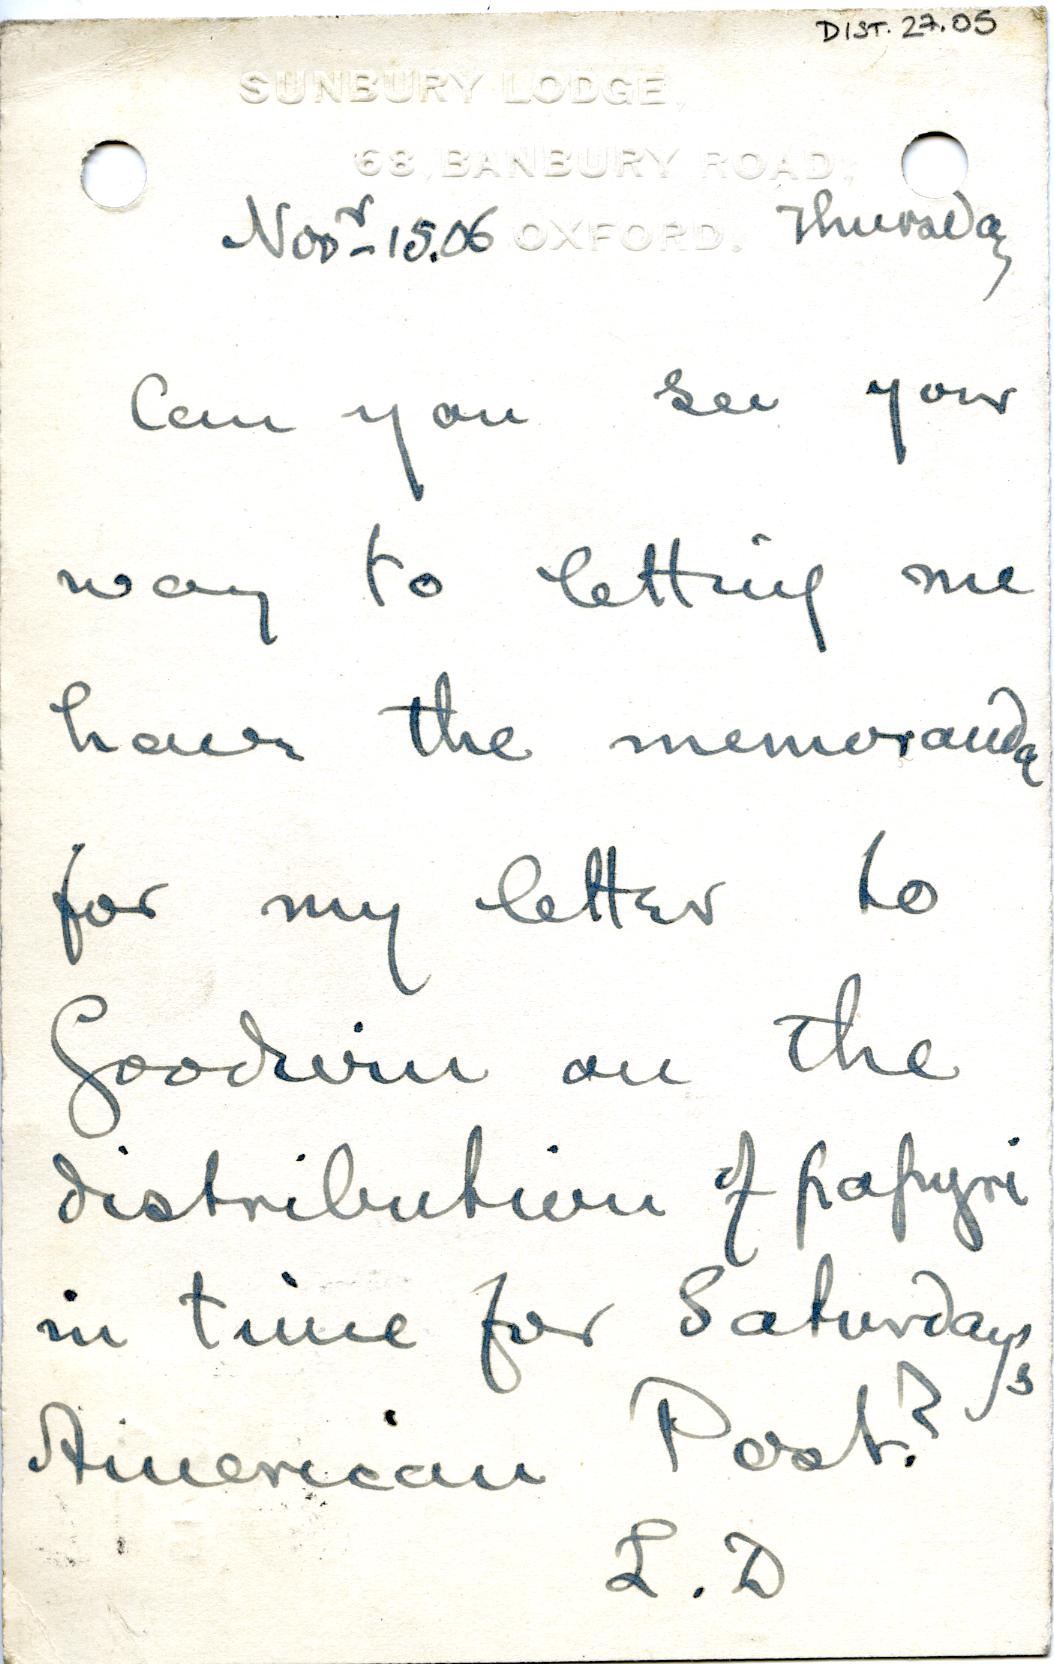 DIST. 27.05
SUNBURY LODGE,
68, BANBURY ROAD,
OXFORD.
Novr 15.06 Thursday
Can you see your
way to letting me
have the memoranda
for my letter to
Goodwin on the
distribution of papyri
in time for Saturdays
American Post?
L.D